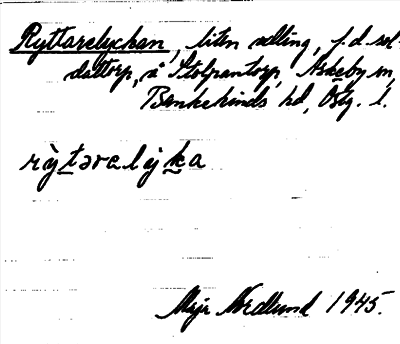 Ryttarelyckan, liten odling, f.d. sol-
dattorp, å Stolpantorp, Askeby sn,
Bankekinds hd, Östg. l.
rỳtarelýka
Maja Nordlund 1945.